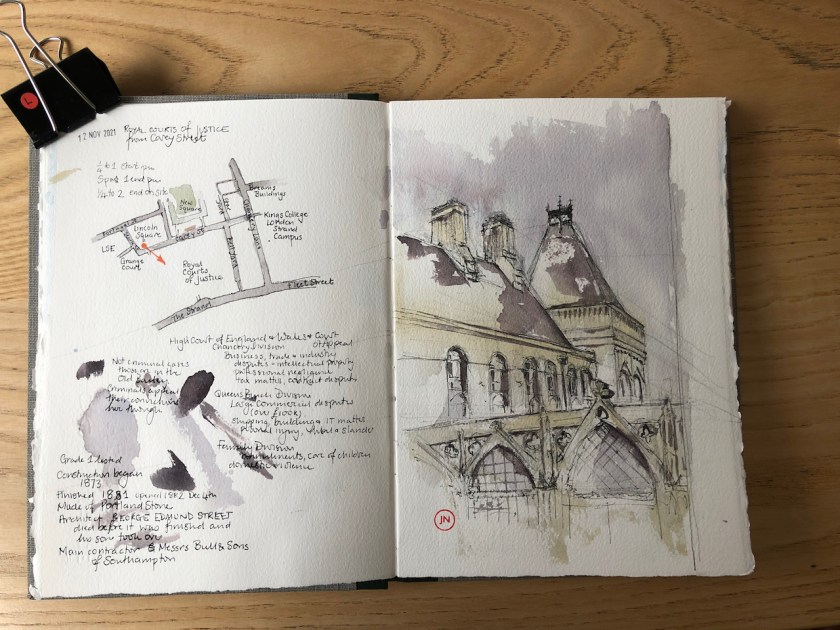 L
12 NOV 2021 ROYAL COURTS OF JUSTICE
from Carey Street
1/4 to 1 start pm
5 past 1 end pm
1/4 to 2 end on site
New Square
Breams Buildings
Chancery Lane
Kings College
London
Strand
Campus
Portugal St
Lincoln
Square
Carey St
LSE
Grange
Court
Royal
Courts
of Justice
Fleet Street
The Strand
High Court of England & Wales & Court
of Appeal
Chancery Division
Business, trade & industry
disputes - intellectual property
professional negligence
tax matters, disputes
Not criminal cases
them are in the
Old Bailey
Criminals appeal
their convictions
here through
Queens Bench Division
Large Commercial disputes
(over £100k)
shipping, building & IT matters
personal injury, libel & slander
Family Division
annulments, care of children
domestic violence
Grade 1 listed
Construction began
1873
Finished 1881 opened 1882 Dec 4th
Made of Portland Stone
Architect GEORGE EDMUND STREET
died before it was finished and
his son took over
Main contractor Messrs Bull & Sons
of Southampton
JN